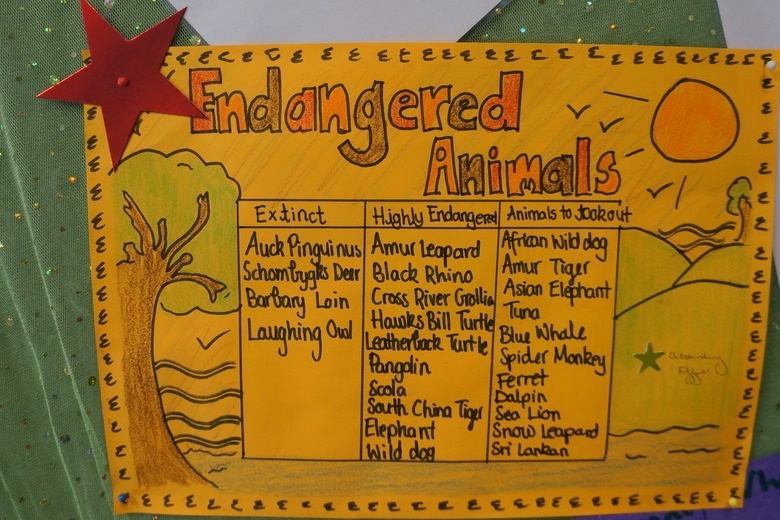 Endangered
Animals
Extinct
Auck Pinguinus
Schombygks Deer
Barbary Loin
Laughing Owl
Highly Endangered
Amur Leopard
Black Rhino
Cross River Grollia
Hawks Bill Turtle
Leatherback Turtle
Pangolin
Scola
South China Tiger
Elephant
Wild dog
Animals to look out
African Wild dog
Amur Tiger
Asian Elephant
Tuna
Blue Whale
Spider Monkey
Ferret
Dalpin
Sea Lion
Snow Leopard
Sri Lankan